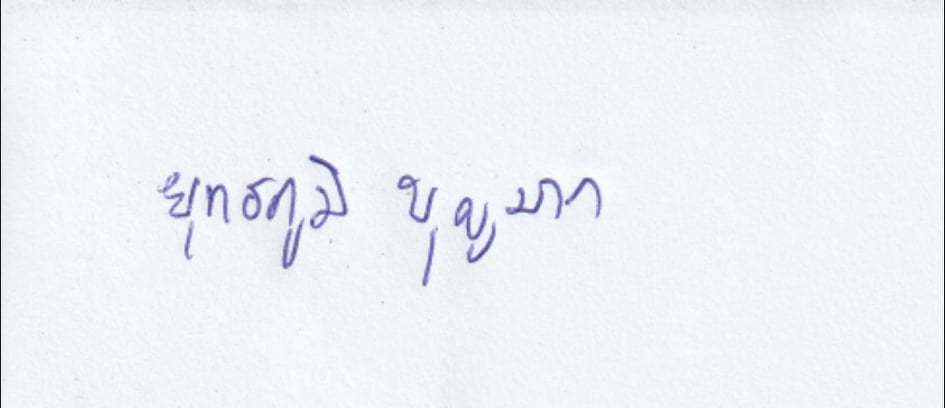 ยุทธภูมิ บุญมาก